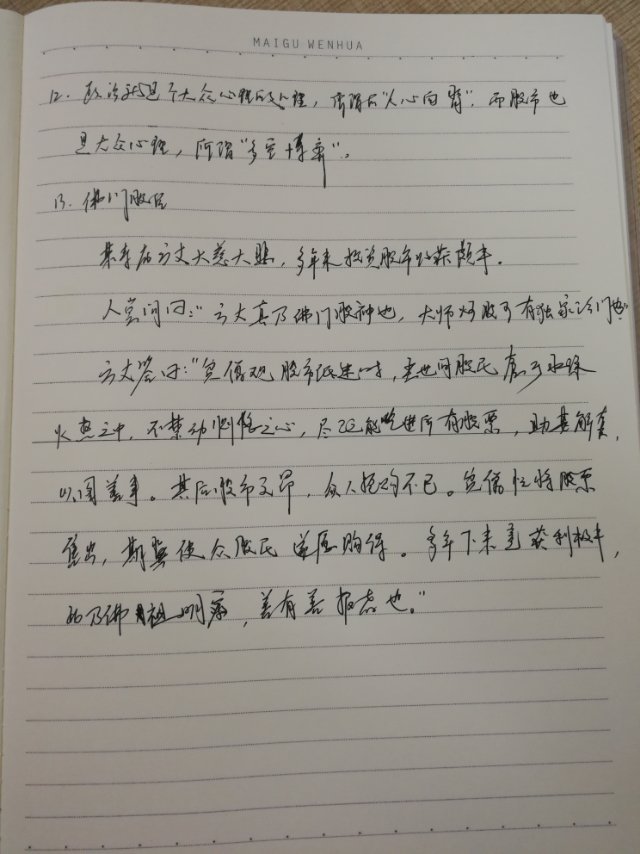 MAIGU WENHUA
12. 政治就是个大众心理的处理，所谓"人心向背"，而股市也
是大众心理，所谓"多空博弈"。
13. 佛门股经
某寺庙方丈大慈大悲，多年来投资股市收获颇丰。
人皆问曰："方丈真乃佛门股神也，大师炒股可有独家法门也"
方丈答曰："贫僧观股市低迷时，尘世间股民属于水深
火热之中，不禁动恻隐之心，尽己能吃进所有股票，助其解套，
以图善事。其后股市又昂，众人抢购不已。贫僧忙将股票
售出，期冀使众股民 遂愿购得。多年下来竟获利极丰，
此乃佛祖明察，善有善报者也。"